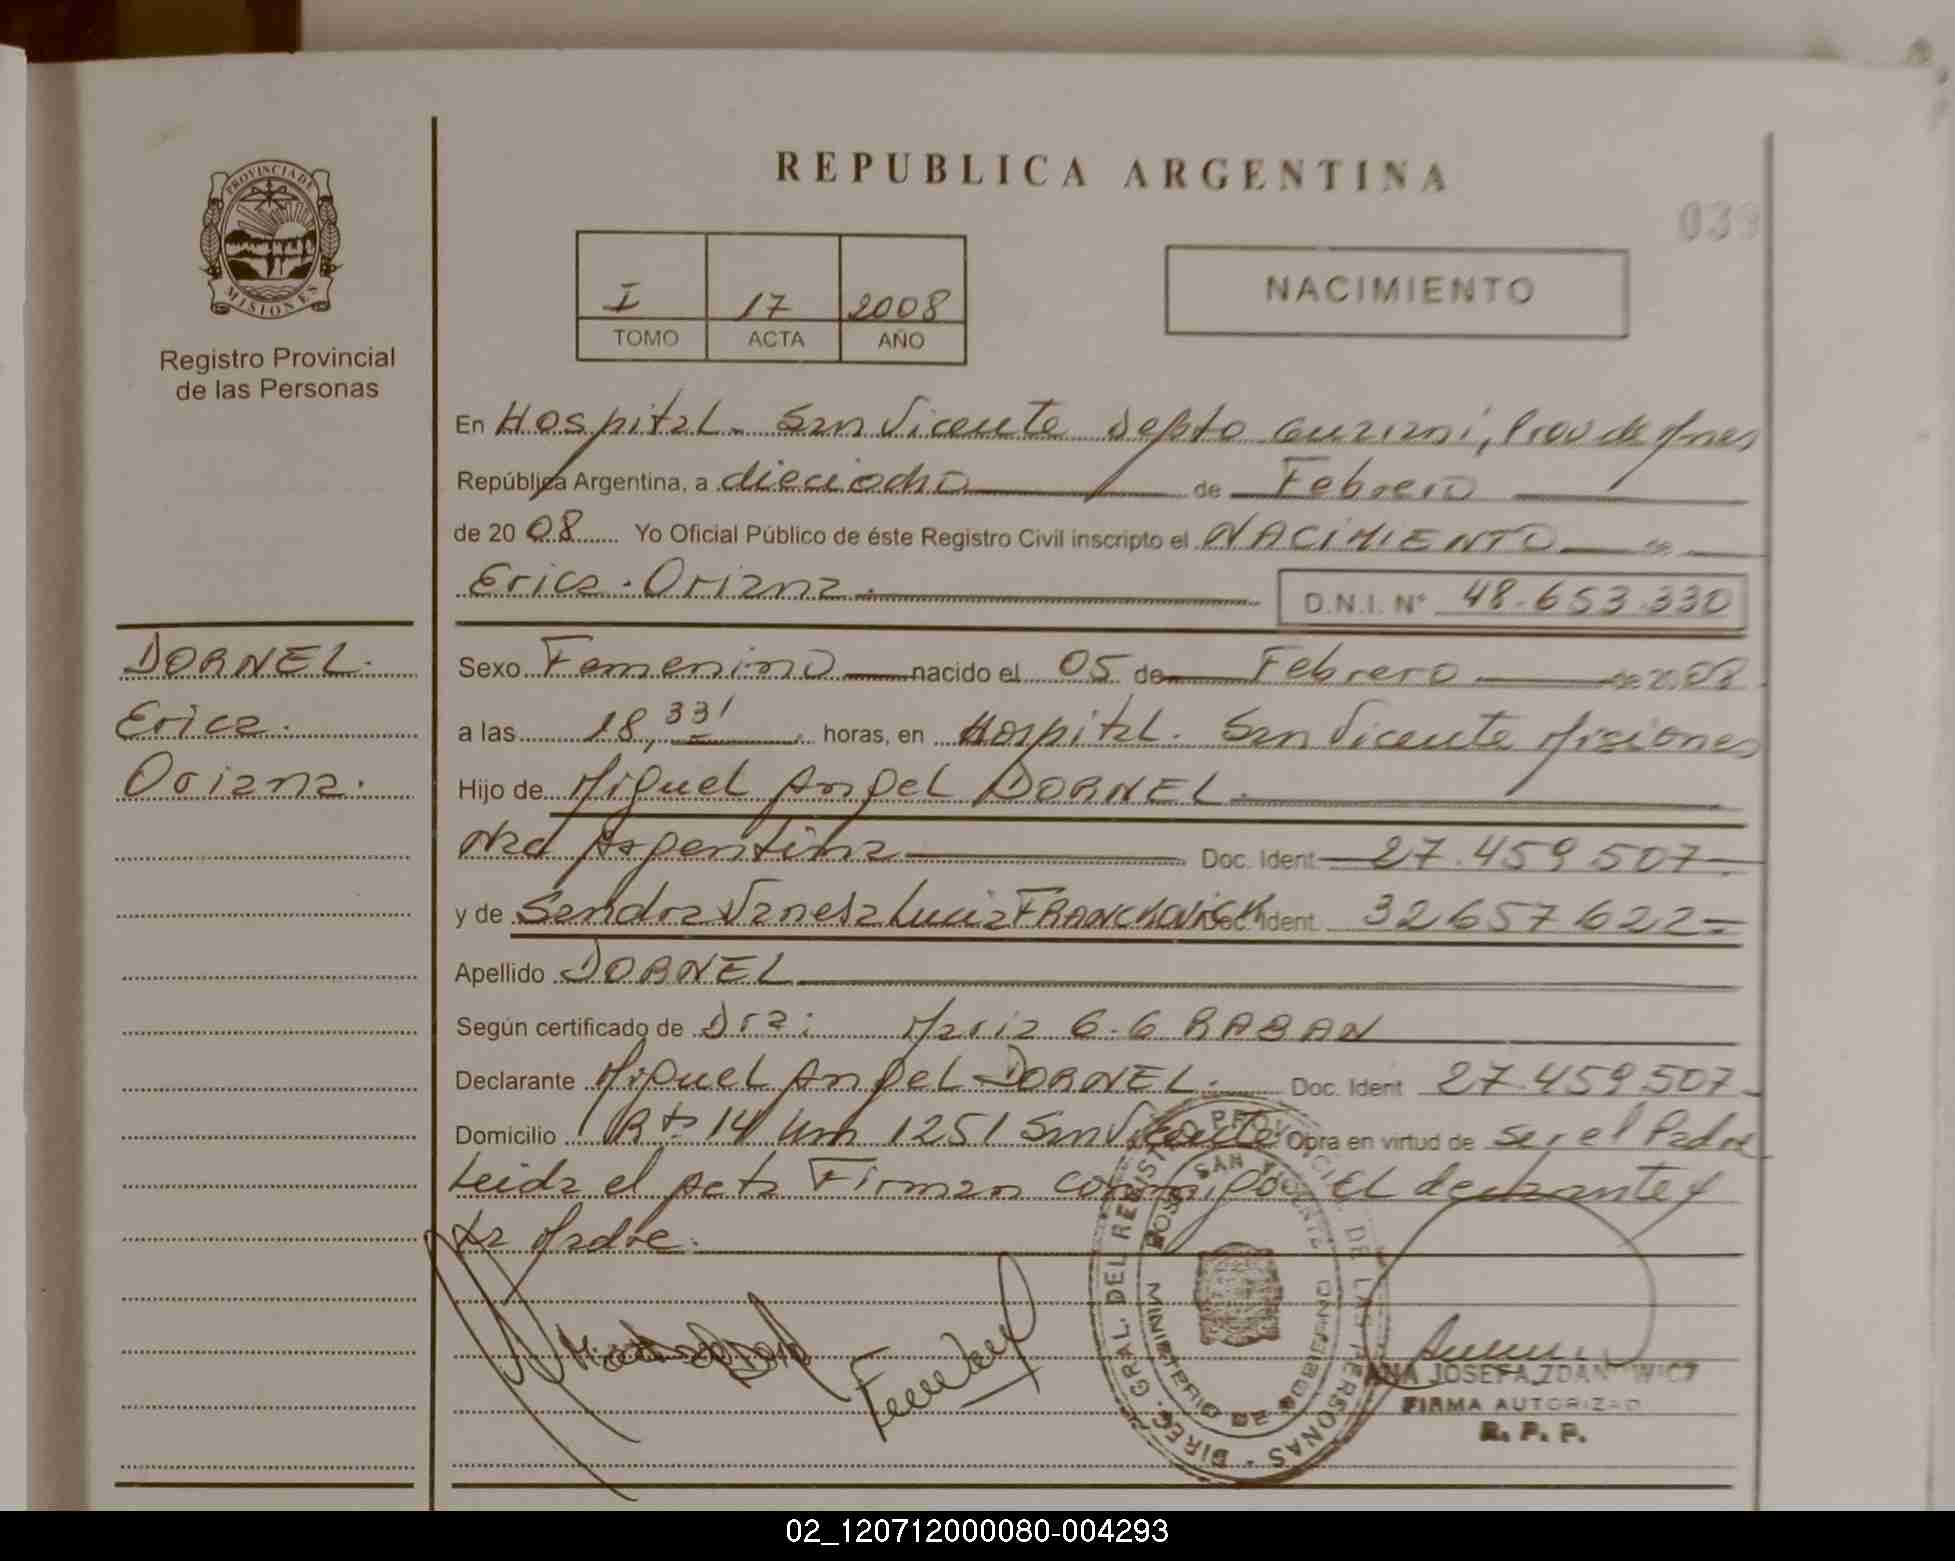 REPUBLICA ARGENTINA
039
PROVINCIA DE
MISIONES
Registro Provincial
de las Personas
I 17 2008
TOMO ACTA AÑO
NACIMIENTO
En Hospital. San Vicente Depto Guarani, Prov de Mnes
República Argentina, a dieciocho de Febrero
de 20 08 Yo Oficial Público de éste Registro Civil inscripto el NACIMIENTO de
Erica. Oriana. D.N.I. Nº 48.653.330
DORNEL.
Erica.
Oriana.
Sexo Femenino nacido el 05 de Febrero de 2008
a las 18,33' horas, en Hospital. San Vicente Misiones
Hijo de Miguel Angel DORNEL
Nac Argentina Doc. Ident 27.459 507
y de Sandra Vanesa Lucia FRANCHOVICH Doc. Ident. 32657622=
Apellido DORNEL
Según certificado de Dra: Maria G. G RABAN
Declarante Miguel Angel DORNEL. Doc. Ident 27.459 507
Domicilio Rta 14 Km 1251 San Vicente Obra en virtud de ser el Padre
Leida el acta Firman conmigo El declarante y
La Madre.
DIREC. GRAL. DEL REGISTRO PROVINCIAL DE LAS PERSONAS
SAN VICENTE
MINISTERIO DE GOBIERNO
ANA JOSEFA ZDANOWICZ
FIRMA AUTORIZAD
R. P. P.
02_120712000080-004293